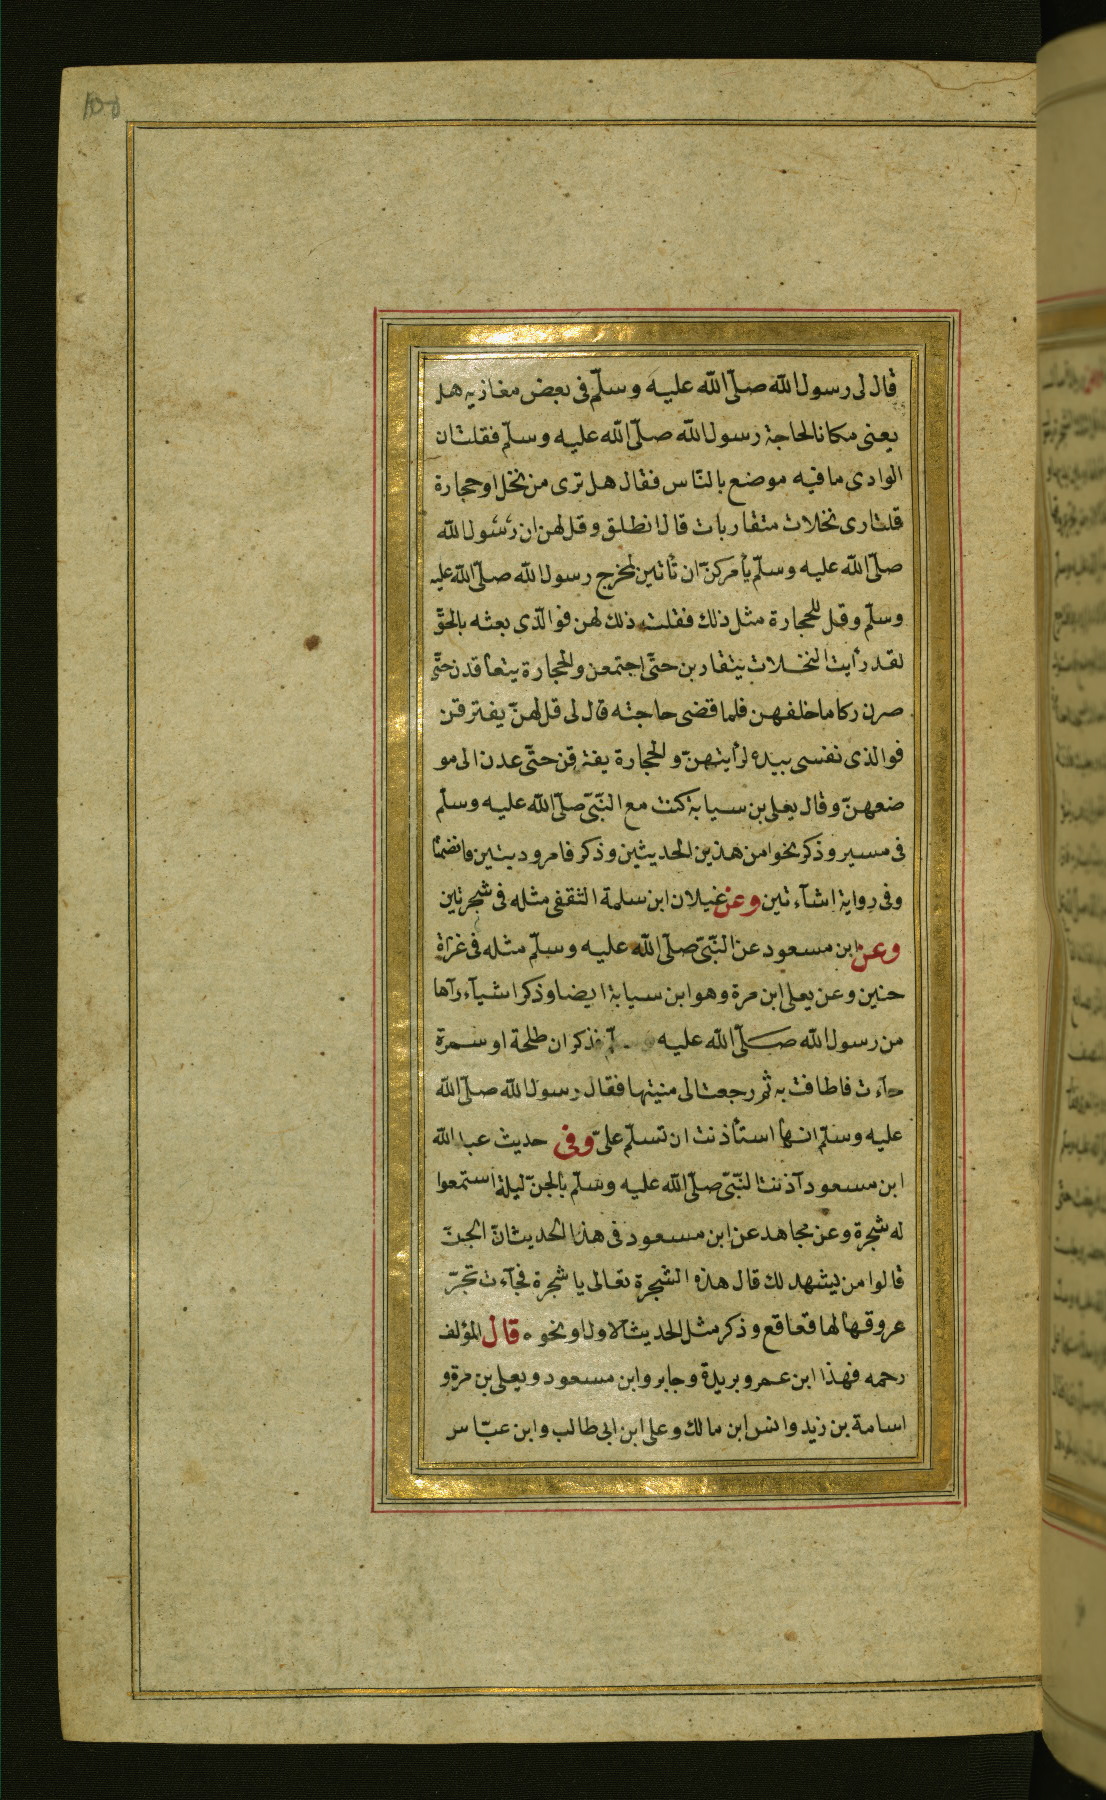 قال لى رسول الله صلّى الله عليه وسلّم فى بعض مغازيه هل
يعنى مكانا لحاجة رسول الله صلّى الله عليه وسلّم فقلت ان
الوادى ما فيه موضع بالنّاس فقال هل ترى من نخل او حجارة
قلت ارى نخلات متقاربات قال انطلق وقل لهن ان رسُول الله
صلّى الله عليه وسلّم يأمركنّ ان تأتين لمخرج رسول الله صلّى الله عليه
وسلّم وقل للحجارة مثل ذلك فقلت ذلك لهن فوالّذى بعثه بالحقّ
لقد رأيت النخلات يتقاربن حتّى اجتمعن والحجارة يتعاقدن حتّى
صرن ركاما خلفهن فلما قضى حاجته قال لى قل لهنّ يفترقن
فوالذى نفسى بيده لرأيتهنّ والحجارة يفترقن حتّى عدن الى مو
ضعهنّ وقال يعلى بن سيابة كنت مع النّبىّ صلّى الله عليه وسلّم
فى مسير وذكر نحوا من هذين الحديثين وذكر فامر وديتين فانضمّا
وفى رواية اشآءتين وعن غيلان ابن سلمة الثقفى مثله فى شجرتين
وعن ابن مسعود عن النّبىّ صلّى الله عليه وسلّم مثله فى غزاة
حنين وعن يعلى ابن مرة وهو ابن سيابة ايضا وذكر اشيآء رآها
من رسول الله صلّى الله عليه فذكر ان طلحة او سمرة
جآءت فاطافت به ثم رجعت الى منبتها فقال رسول الله صلّى الله
عليه وسلّم انها استأذنت ان تسلّم علىّ وفى حديث عبد الله
ابن مسعود آذنت النّبىّ صلّى الله عليه وسلّم بالجنّ ليلة استمعوا
له شجرة وعن مجاهد عن ابن مسعود فى هذا الحديث انّ الجنّ
قالوا من يشهد لك قال هذه الشجرة تعالى يا شجرة فجآءت تجرّ
عروقها لها قعاقع وذكر مثل الحديث الاول او نحوه قال المؤلف
رحمه فهذا ابن عمر وبريدة وجابر وابن مسعود ويعلى بن مرة و
اسامة بن زيد وانس ابن مالك وعلى ابن ابى طالب وابن عبّاس